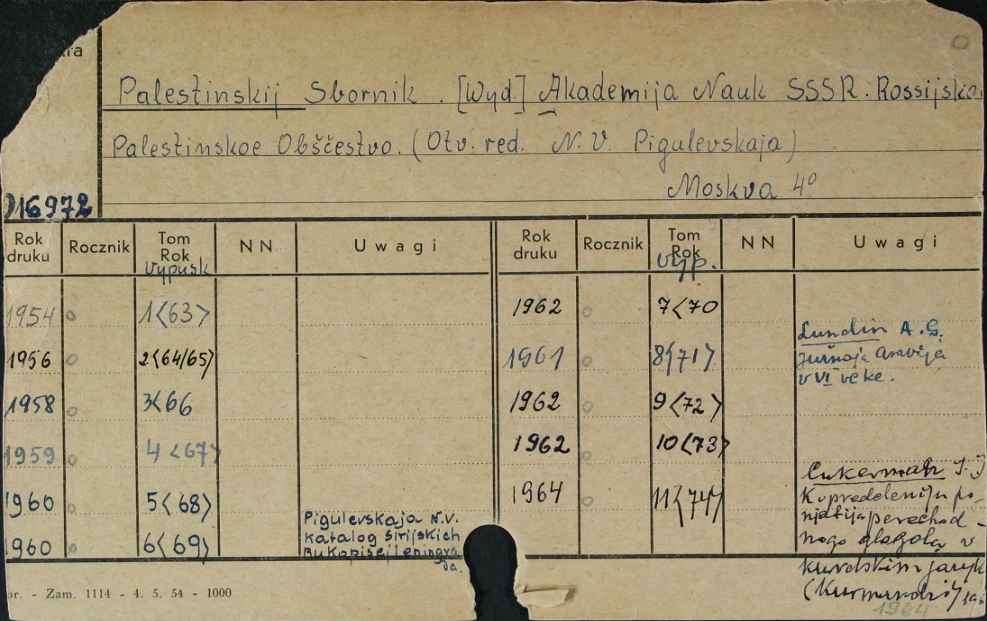 Palestinskij Sbornik. [Wyd] Akademija Nauk SSSR. Rossijsko
Palestinskoe Obščestvo. (Otv. red. N. V. Pigulevskaja)
Moskva 4°
16972
Rok druku Rocznik Tom Rok N N Uwagi Rok druku Rocznik Tom Rok N N Uwagi
Vypusk Vyp.
1954 1<63> 1962 7<70
1956 2<64/65> 1961 8<71> Lundin A. G.
Južnaja Aravija
v VI veke.
1958 3<66 1962 9<72>
1959 4<67> 1962 10<73>
1960 5<68> 1964 11<74> Cukerman I. I
K opredeleniju po-
njatija perechod-
nogo glagola v
kurdskim jazyk
(Kurmandži)
1964
1960 6<69> Pigulevskaja N.V.
Katalog sirijskich
rukopisej
or. - Zam. 1114 - 4. 5. 54 - 1000